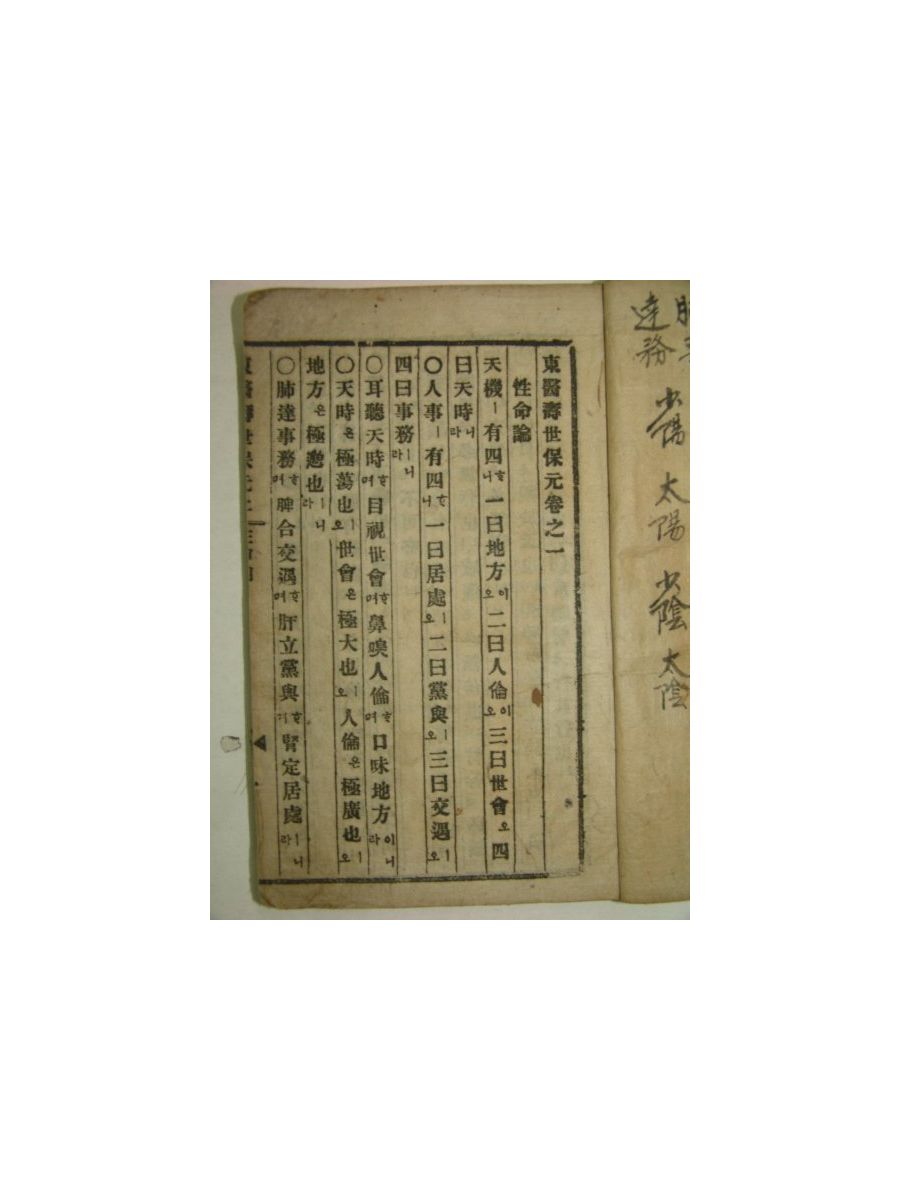 達務
少陽 太陽 少陰 太陰
東醫壽世保元卷之一
性命論
天機ㅣ有四ᄒᆞ니一曰地方이오二曰人倫이오三曰世會오四
曰天時니라
〇人事ㅣ有四ᄒᆞ니一曰居處ㅣ오二曰黨與ㅣ오三曰交遇ㅣ오
四曰事務ㅣ니라
〇耳聽天時ᄒᆞ며目視世會ᄒᆞ며鼻嗅人倫ᄒᆞ며口味地方이니라
〇天時은極蕩也ㅣ오世會은極大也ㅣ오人倫은極廣也ㅣ오
地方은極邈也ㅣ니라
〇肺達事務ᄒᆞ며脾合交遇ᄒᆞ며肝立黨與ᄒᆞ며腎定居處ㅣ니라
東醫壽世保元